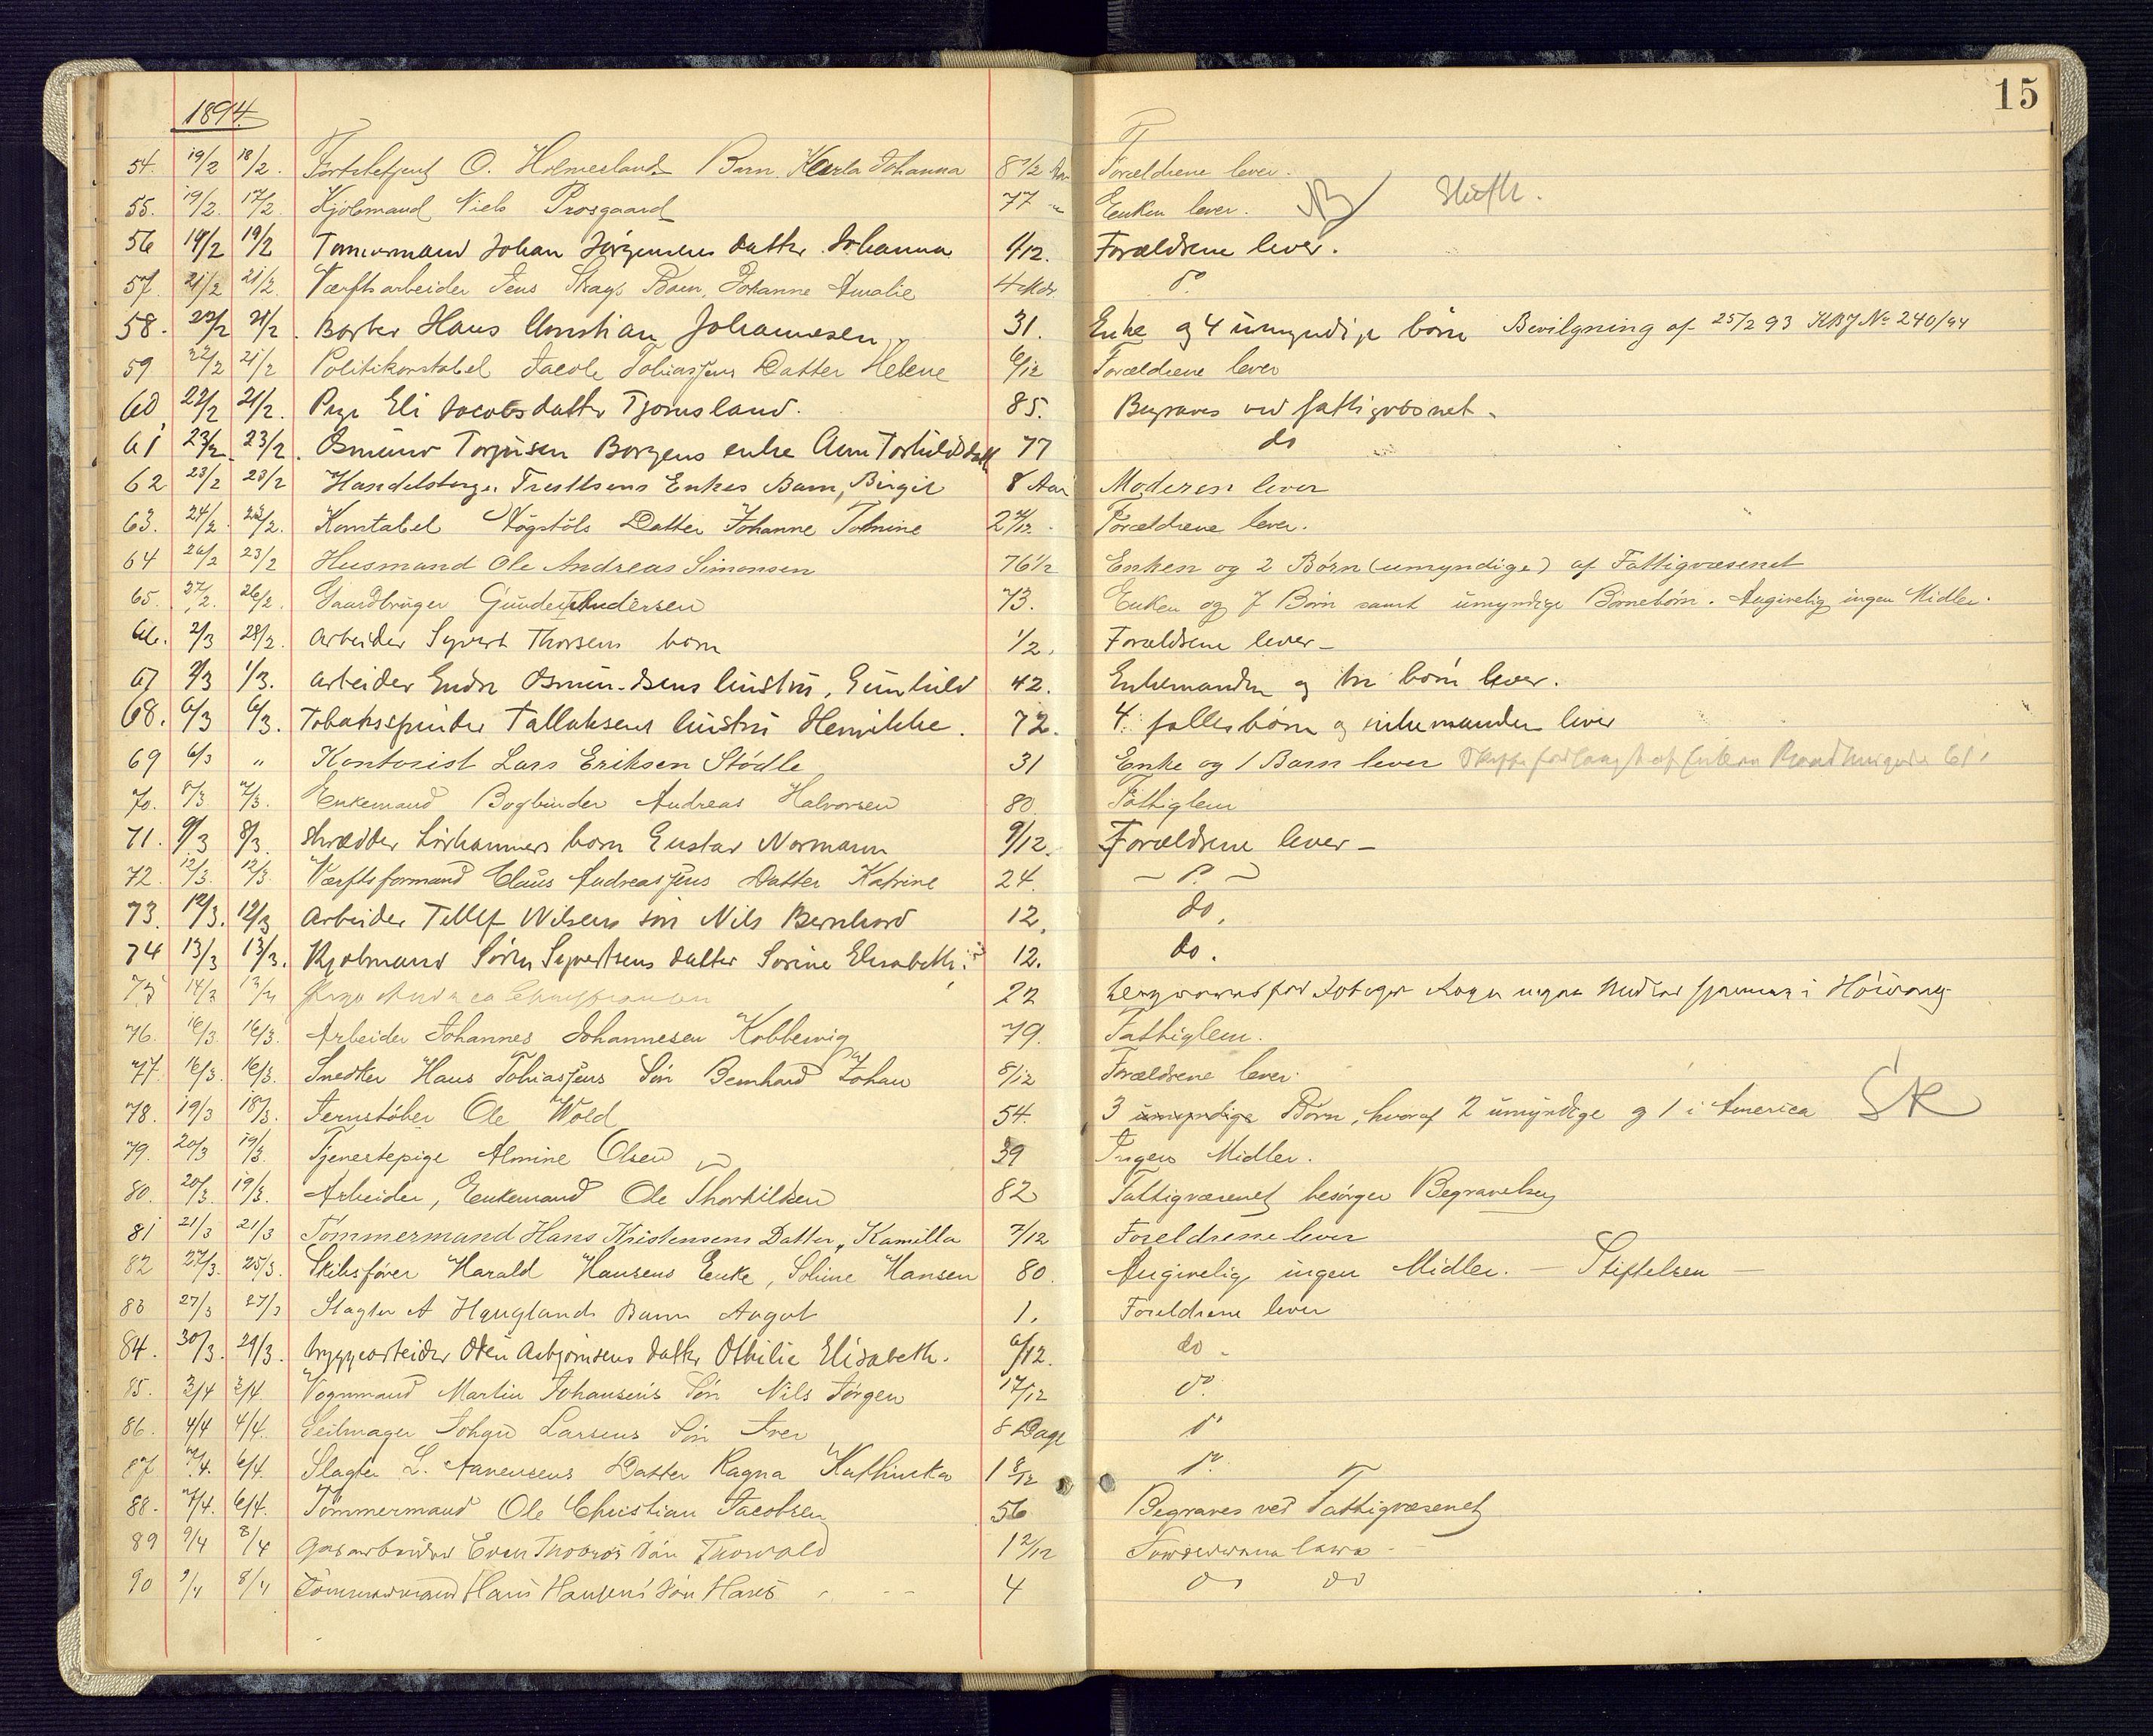 15
1894.
54. 19/2 18/2. O. Holmeslands Barn Karla Johanna 8 1/2 Aar Forældrene lever.
55. 19/2. 17/2. Kjølsmand Niels Prosgaard 77 " Enken lever. NB
56 19/2 19/2 Tømmermand Johan Jørgensens datter Johanna 1/12. Forældrene lever.
57. 21/2 21/2. Værftsarbeider Jens Skays Barn, Johanne Amalie 4 Mdr do
58. 22/2 21/2. Barber Hans Christian Johannesen 31. Enke og 4 umyndige børn Bevilgning af 25/2 93 No 240/94
59 22/2 21/2 Politikonstabel Jacob Tobiassens Datter Helene 6/12 Forældrene lever
60 22/2 21/2. Pige Eli Jacobsdatter Tjomsland. 85. Begraves ved fattigvæsnet.
61 23/2 23/2. Osmund Torjusen Borgens enke Ann Torkildsdatt 77 do
62 23/2 23/2 Enkes Barn, Birgit 8 Aar Moderen lever
63. 24/2. Konstabel Datter Johanne Tomine 2 Forældrene lever.
64 26/2 23/2 Husmand Ole Andreas Simonsen 76 1/2 Enken og 2 Børn (umyndige) af Fattigvæsenet
65. 27/2. 26/2. Gaardbruger Gunder Andersen 73. Enken og 7 Børn samt umyndige Børnebørn. Angivelig ingen Midler.
66. 2/3 28/2. Arbeider Syvert Thorsens barn 1/2. Forældrene lever
67 2/3 1/3. Arbeider Endre Osmundsens hustru, Gunhild 42. Enkemanden og tre børn lever.
68. 6/3 6/3. Tobaksspinder Tallaksens hustru Henrikke. 72. 4 fællesbørn og enkemanden lever
69 6/3 " Kontorist Lars Eriksen Stødle 31 Enke og 1 Barn lever
70. 8/3 7/3. Enkemand Bogbinder Andreas Halvorsen 80. Fattiglem
71. 9/3 8/3. Skrædder barn Gustav Normann 9/12. Forældrene lever
72. 12/3. 12/3. Værftsformand Claus Andreassens Datter Katrine 24. do
73. 12/3. 12/3 Arbeider Tellef Nilsens søn Nils Bernhard 12. do.
74 13/3 13/3. Kjølmand Søren Syvertsens datter Sorine Elisabeth 12. do.
75 14/3 Pige Andrea 22
76. 16/3 16/3. Arbeider Johannes Johannesen Kobbervig 79. Fattiglem.
77 16/3. 16/3. Snedker Hans Tobiassens Søn Bernhard Johan 8/12 Forældrene lever.
78. 19/3 18/3. Jernstøber Ole Wold 54. 3 umyndige Børn, hvoraf 2 umyndige og 1 i America SK
79. 20/3 19/3. Tjenestepige Almine Olsen 39 Ingen Midler.
80. 20/3. 19/3. Arbeider, Enkemand Ole Thorkildsen 82 Fattigvæsenet besørger Begravelsen
81 21/3 21/3 Tømmermand Hans Kristensens Datter, Kamilla 7/12 Foreldrene lever
82 27/3. 25/3. Skibsfører Harald Hansens Enke, Soline Hansen 80. Angivelig ingen Midler. — Stiftelsen —
83 27/3 27/3 Slagter A Hauglands Barn Aagot 1. Foreldrene lever
84. 30/3. 29/3. Bryggearbeider Oten Asbjørnsens datter Othilie Elisabeth. 6/12. do
85. 3/4 3/4. Vognmand Martin Johansens Søn Nils Jørgen 17/12 do
86. 4/4 4/4. Seilmager Johan Larsens Søn Iver 8 Dage do
87 7/4. 6/4. Slagter L. Aanensens Datter Ragna Kathinka 1 8/12 do
88. 7/4. 6/4. Tømmermand Ole Christian Jacobsen 56 Begraves ved Fattigvæsenet
89 9/4 8/4 Gasarbeider Even søn Thorvald 1 2/12 Forældrene lever
90 9/4 8/4 Tømmermand Hans Hansens søn Hans 4 do do